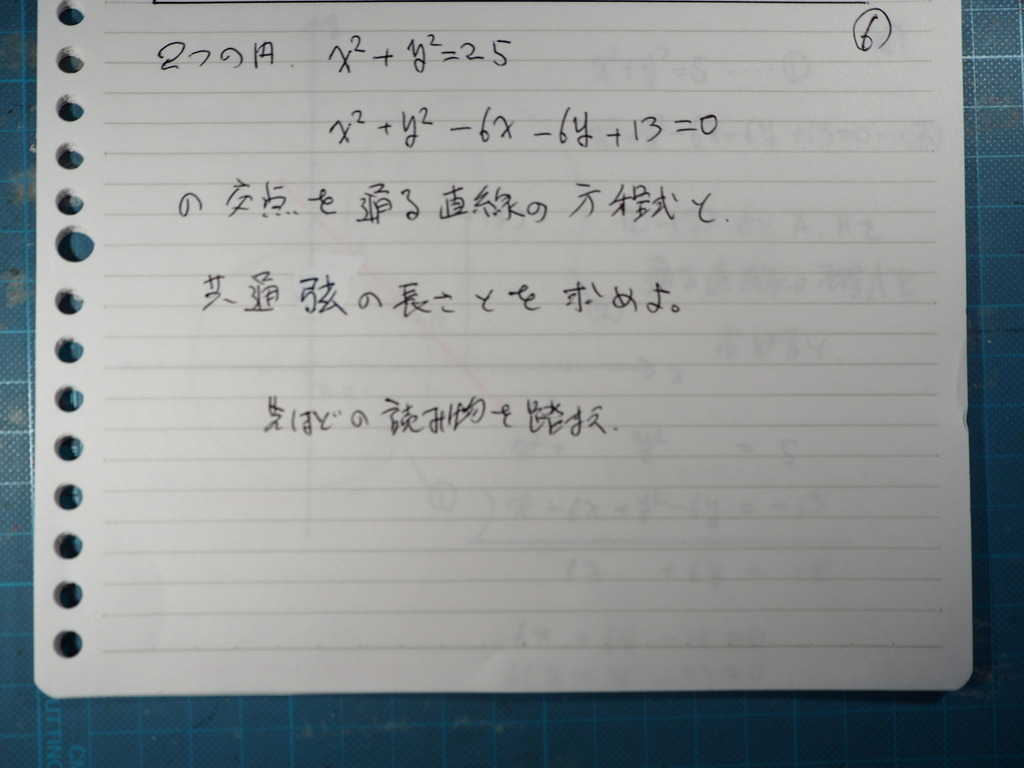 ⑥
2つの円. x²+y²=25
x²+y²-6x-6y+13=0
の交点を通る直線の方程式と.
共通弦の長さとを求めよ。
先ほどの読み物を踏まえ.